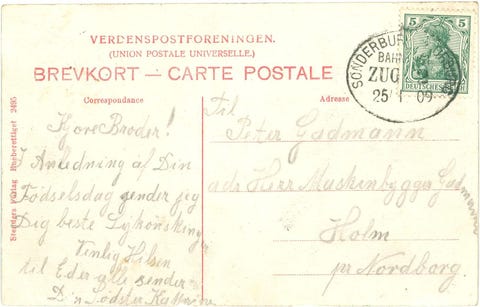 VERDENSPOSTFORENINGEN.
(UNION POSTALE UNIVERSELLE.)
BREVKORT — CARTE POSTALE
Correspondance
Adresse
Kjere Broder!
I Anledning af Din
Fødselsdag sender jeg
Dig beste Lykonskninger
Venlig Hilsen
til Eder alle sender
Din Søster Kathrine
Til
Peter Gadmann
adr Herr Maskinbygger Gadmann
Holm
pr Nordborg.
5 5
DEUTSCHES REICH
SONDERBURG
BAHN
ZUG
25 1 09
Stenders Forlag Eneberettiget 2495